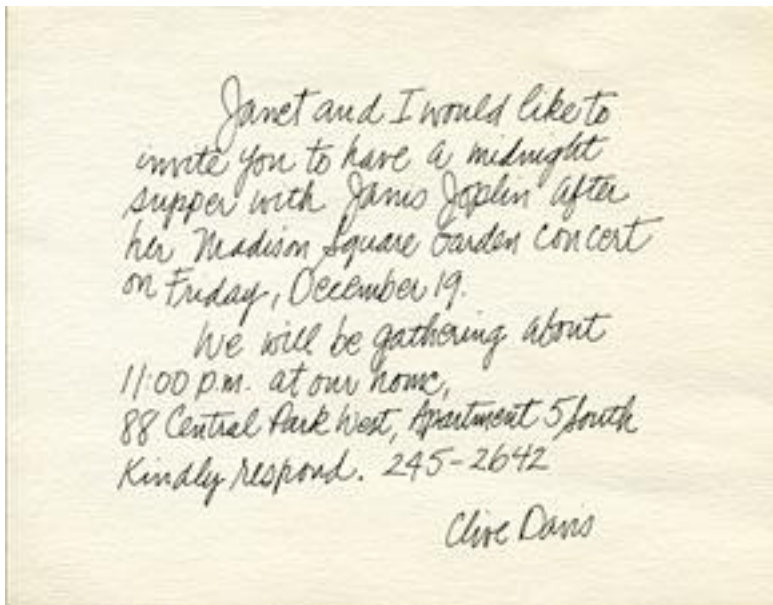 Janet and I would like to
invite you to have a midnight
supper with Janis Joplin after
her Madison Square Garden concert
on Friday, December 19.
We will be gathering about
11:00 p.m. at our home,
88 Central Park West, Apartment 5 South
Kindly respond. 245-2642
Clive Davis